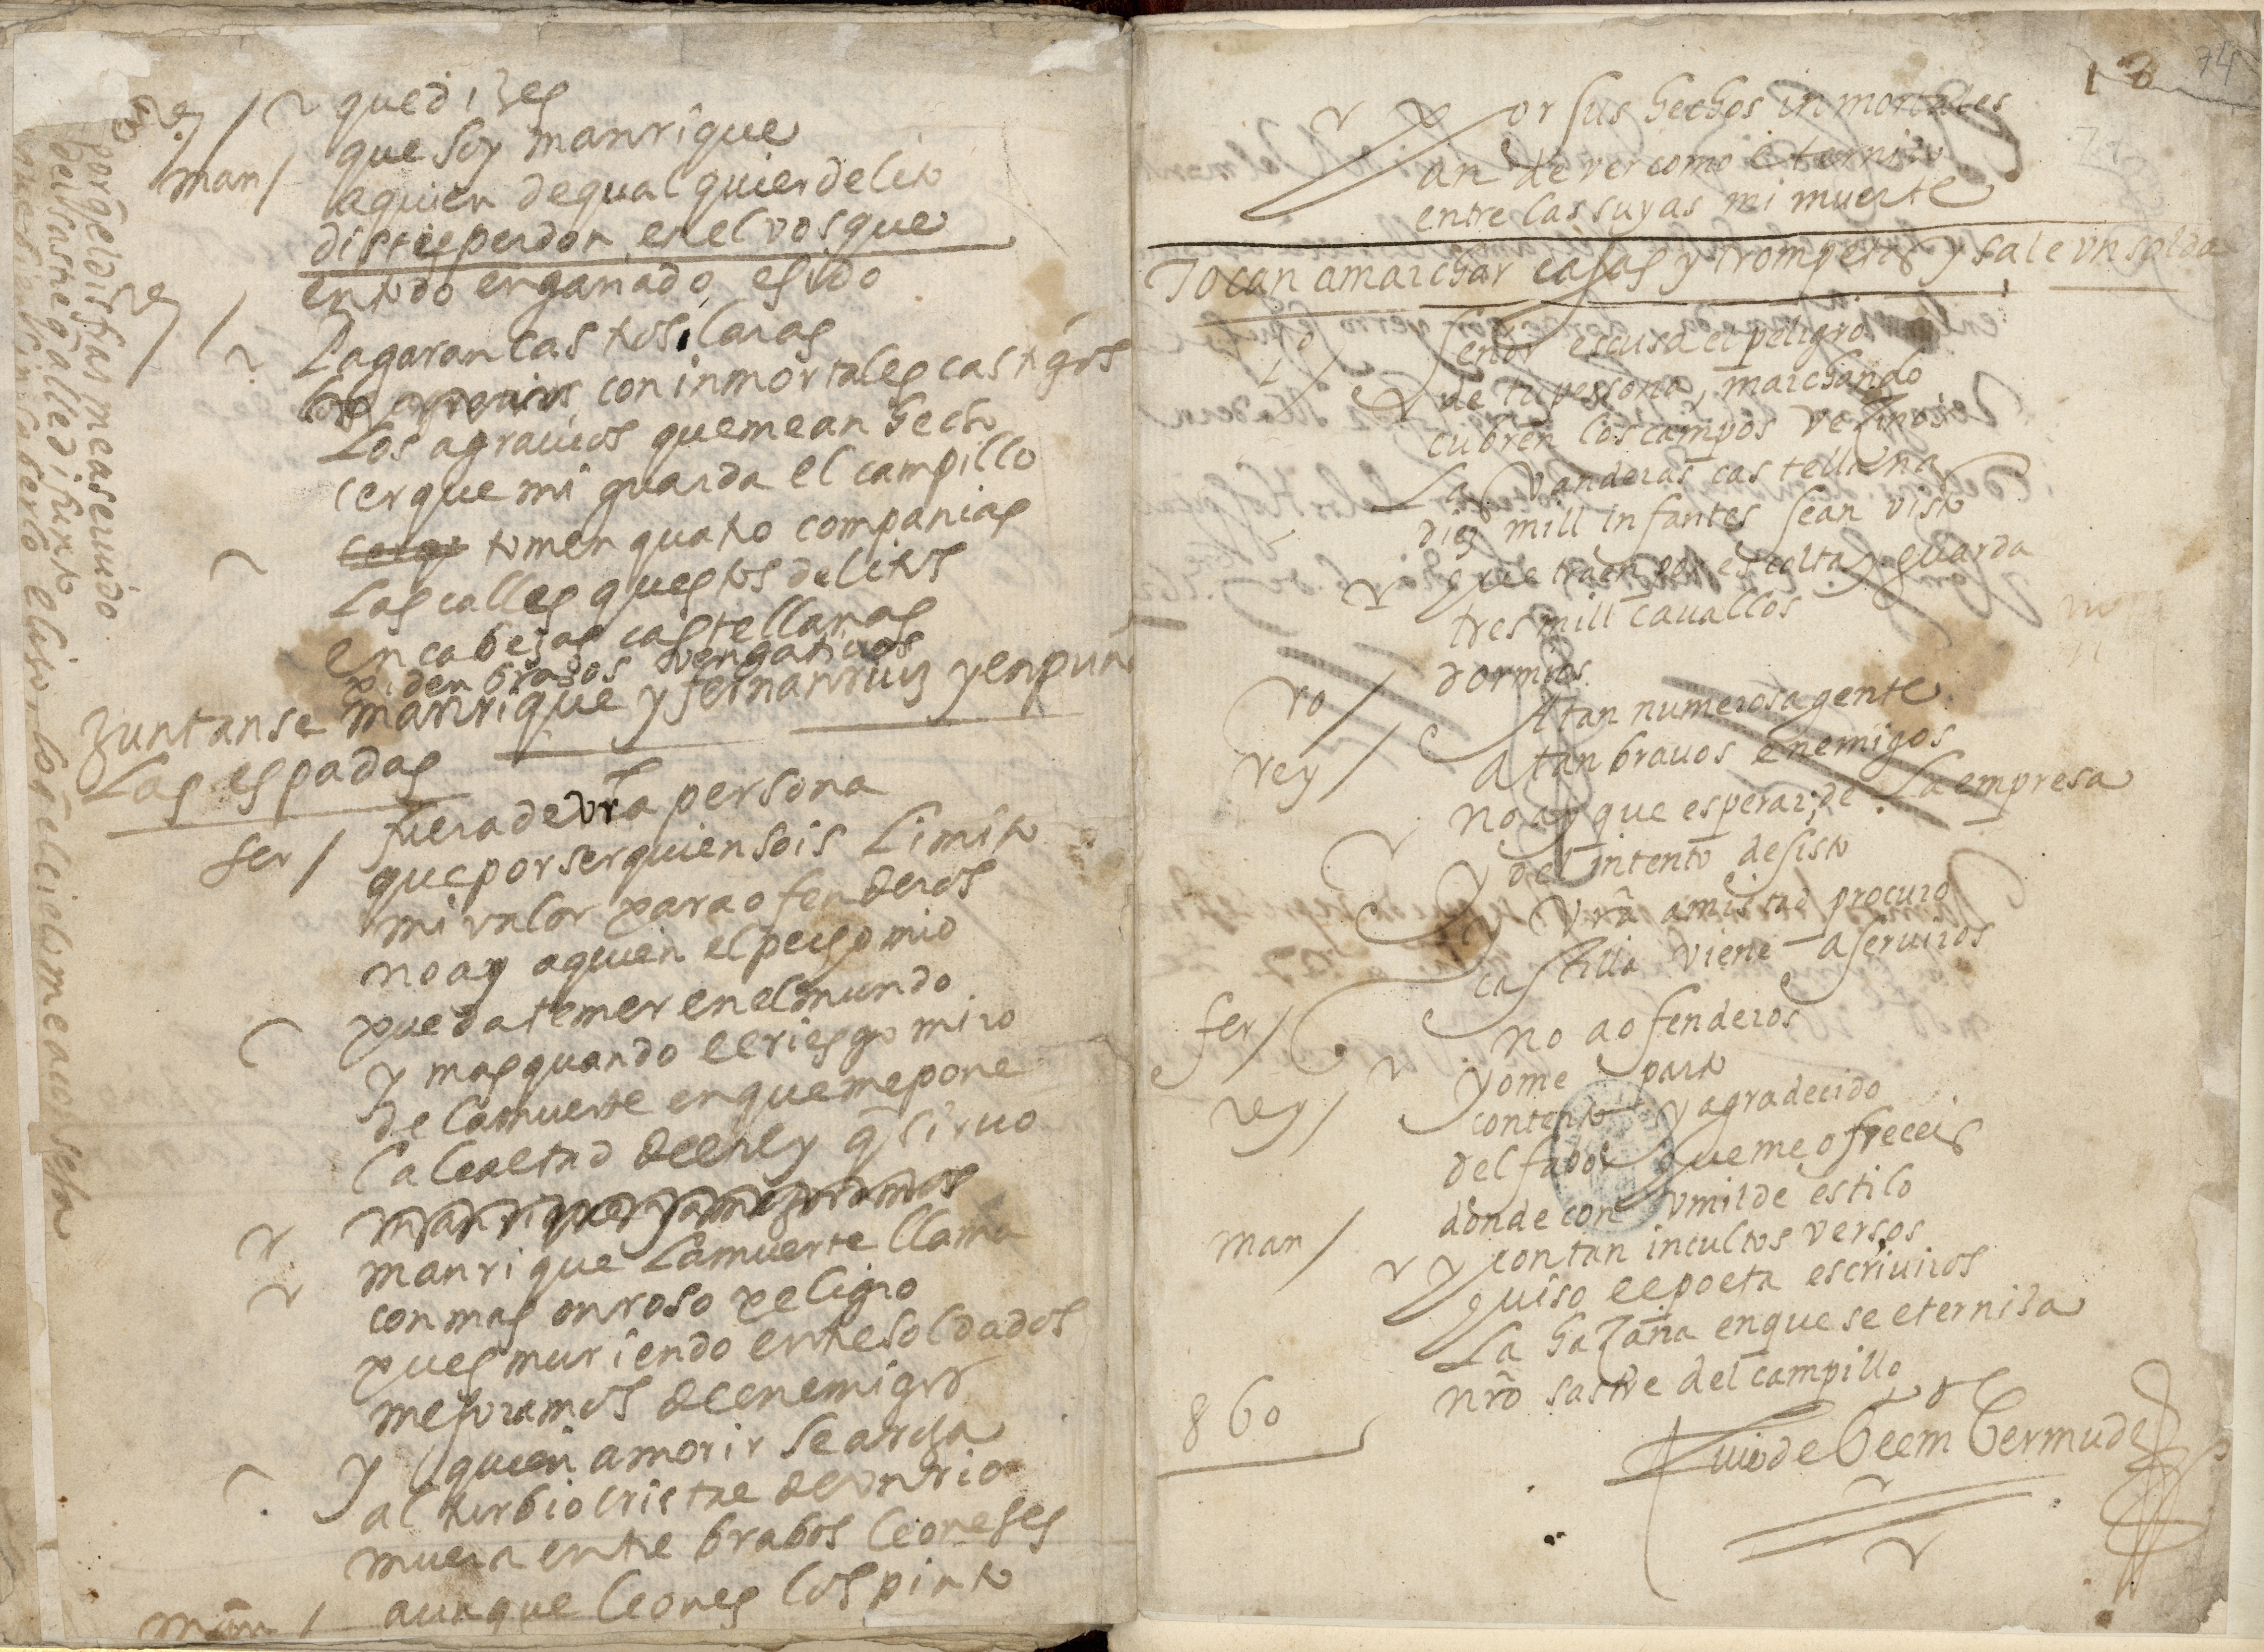 Rey / que dizes
man / que soy manrique
a quien de qual quier delito
diste perdon en el vosque
Rey / en todo engañado e sido
Pagaran las tosilaras
con inmortales castigos
Los agrauios que me an hecho
cerque mi guarda el campillo
tomen quatro companias
Las calles questos delitos
en cabezas castellanas
piden brazos vengatiuos
Zuntanse manrique y fernanruiz y enpuñ
Las espadas
fer / fuera de vrã persona
que por ser quien sois Limito
mi valor para ofenderos
no ay a quien el pecho mio
pueda temer en el mundo
y mas quando el riesgo miro
de la muerte en que me pone
la lealtad del rey q̃ siruo
manrique La muerte llama
con mas onroso peligro
pues muriendo entre soldados
mejoramos de enemigos
y quien a morir se arroja
al turbio cristal de un rio
muera entre brabos leoneses
aunque leones los pinto
man /
porq̃ el disfras me a seruido
del sastre q̃ alle difunto
por sus hechos inmortales
an de ver como eternizo
entre las suyas mi muerte
Tocan a marchar cajas y trompetas y sale vn solda
señor escusa el peligro
de tu persona, marchando
cubren los campos vezinos
Las vanderas castellanas
diez mill infantes sean visto
que traen por escolta y guarda
tres mill cauallos
ro / dormios.
rey / A tan numerosa gente
a tan brauos enemigos
no ay que esperar, de La empresa
y del intento desisto
y vrã amistad procuro
fer / castilla viene a seruiros
no a ofenderos
rey / yo me parto
contento y agradecido
del fabor que me ofreceis
man / donde con vmilde estilo
y con tan incultos versos
quiso el poeta escriuiros
La hazaña en que se eterniza
nrõ sastre del campillo
860
Luis de belm bermudez
74